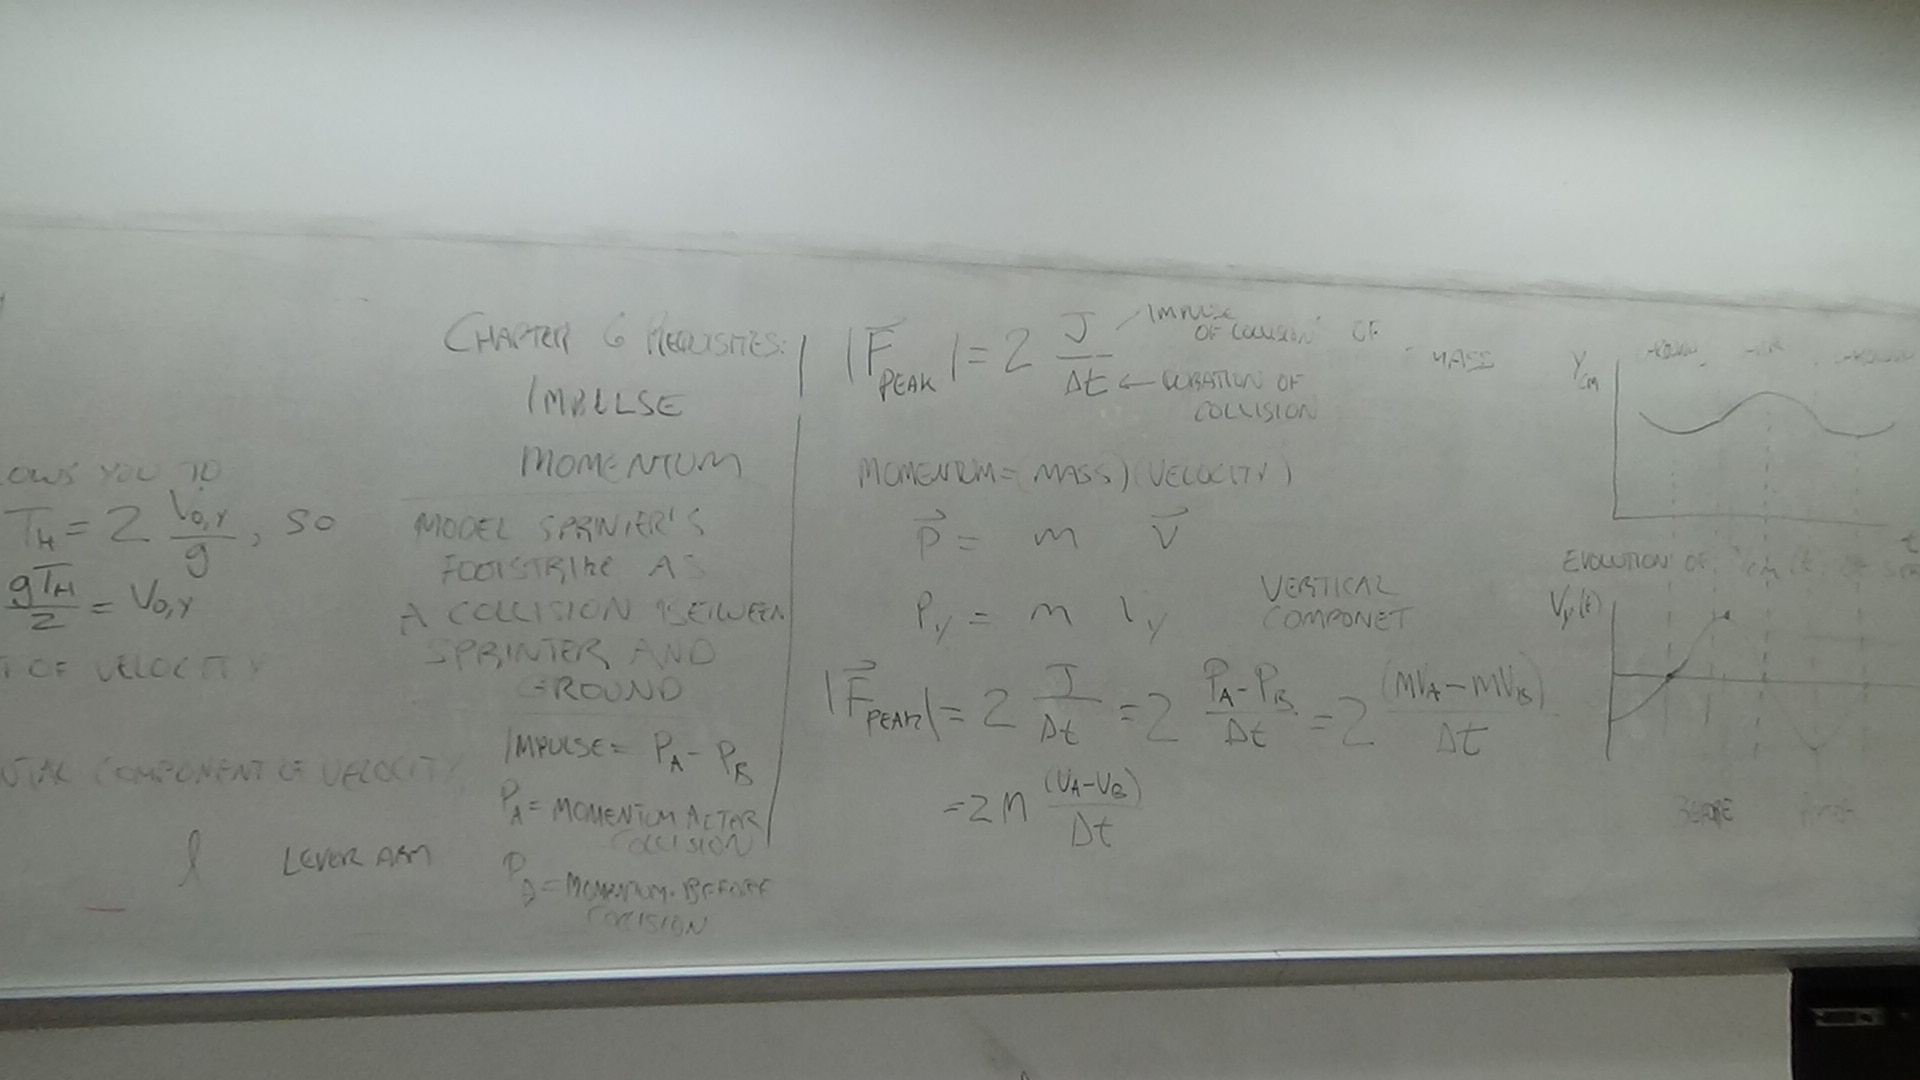 OWS YOU TO
T_H = 2 V_{0,Y}/g, SO
gT_H/2 = V_{0,Y}
T OF VELOCITY
COMPONENT OF VELOCITY
l LEVER ARM
CHAPTER 6 REQUISITES:
IMPULSE
MOMENTUM
MODEL SPRINTER'S
FOOTSTRIKE AS
A COLLISION BETWEEN
SPRINTER AND
GROUND
IMPULSE = P_A - P_B
P_A = MOMENTUM AFTER
COLLISION
P_B = MOMENTUM BEFORE
COLLISION
|F⃗_PEAK| = 2 J/Δt
IMPULSE
OF COLLISION OF
MASS
← DURATION OF
COLLISION
MOMENTUM = (MASS)(VELOCITY)
P⃗ = m V⃗
P_y = m V_y
VERTICAL
COMPONET
|F⃗_PEAK| = 2 J/Δt = 2 (P_A - P_B)/Δt = 2 (MV_A - MV_B)/Δt
= 2M (V_A - V_B)/Δt
Y_CM
t
EVOLUTION OF
V_y(t)
BEFORE